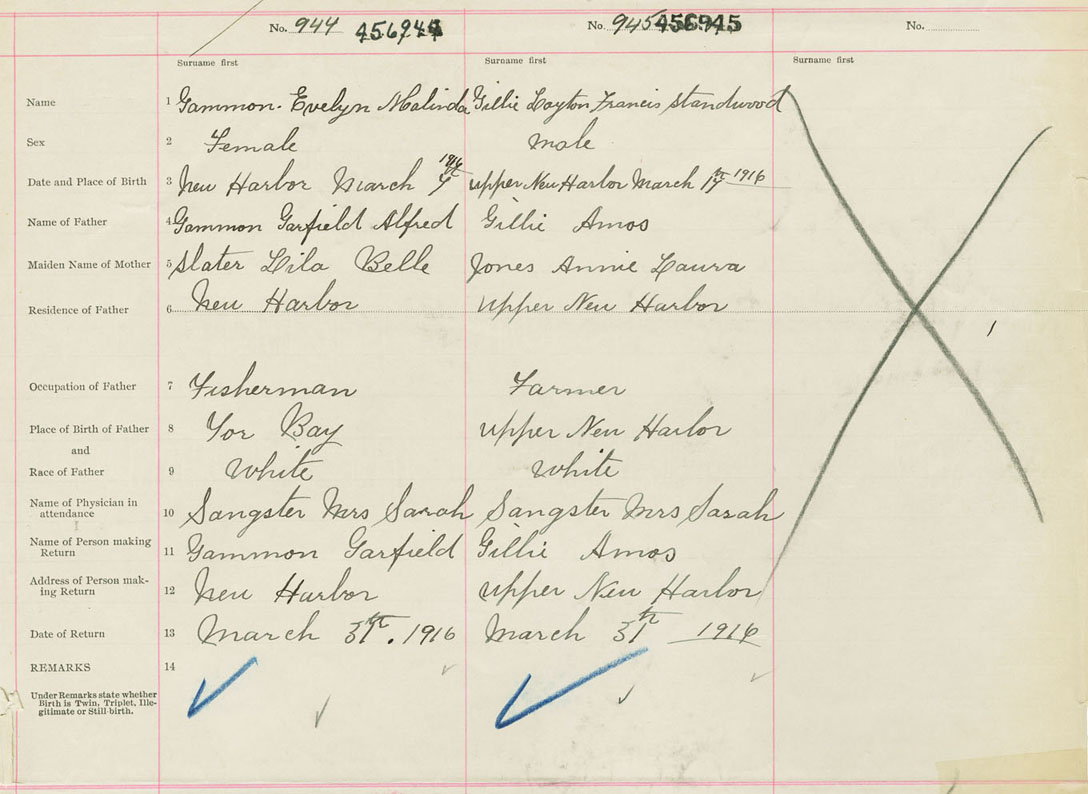 No. 944 456944 No. 945 456945 No.
Surname first Surname first Surname first
Name 1 Gammon. Evelyn Malinda Gillie Layton Francis Standwood
Sex 2 Female male
1916
Date and Place of Birth 3 New Harbor March 7th upper New Harbor March 17th 1916
Name of Father 4 Gammon Garfield Alfred Gillie Amos
Maiden Name of Mother 5 Slater Lila Belle Jones Annie Laura
Residence of Father 6 New Harbor upper New Harbor
Occupation of Father 7 Fisherman Farmer
Place of Birth of Father 8 Tor Bay upper New Harbor
and
Race of Father 9 White White
Name of Physician in
attendance 10 Sangster Mrs Sarah Sangster Mrs Sarah
Name of Person making
Return 11 Gammon Garfield Gillie Amos
Address of Person mak-
ing Return 12 New Harbor upper New Harbor
Date of Return 13 March 31th. 1916 March 31th 1916
REMARKS 14
Under Remarks state whether
Birth is Twin, Triplet, Ille-
gitimate or Still-birth.